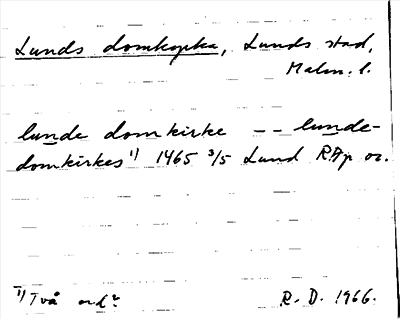 Lunds domkyrka, Lunds stad,
Malm. l.
lunde domkirke -- lunde-
domkirkes¹⁾ 1465 3/5 Lund RAp or.
¹⁾ Två ord? R. D. 1966.